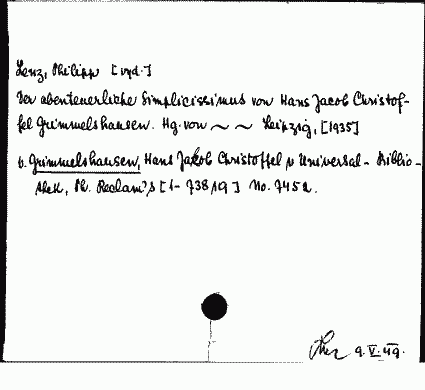 Lenz, Philipp [vyd.]
Der abenteuerliche Simplicissimus von Hans Jacob Christof-
fel Grimmelshausen. Hg. von ~ ~ Leipzig, [1935]
v. Grimmelshausen, Hans Jakob Christoffel v Universal-Biblio-
thek, Ph. Reclam's [1- 738/9] No. 7452.
9.V.49.